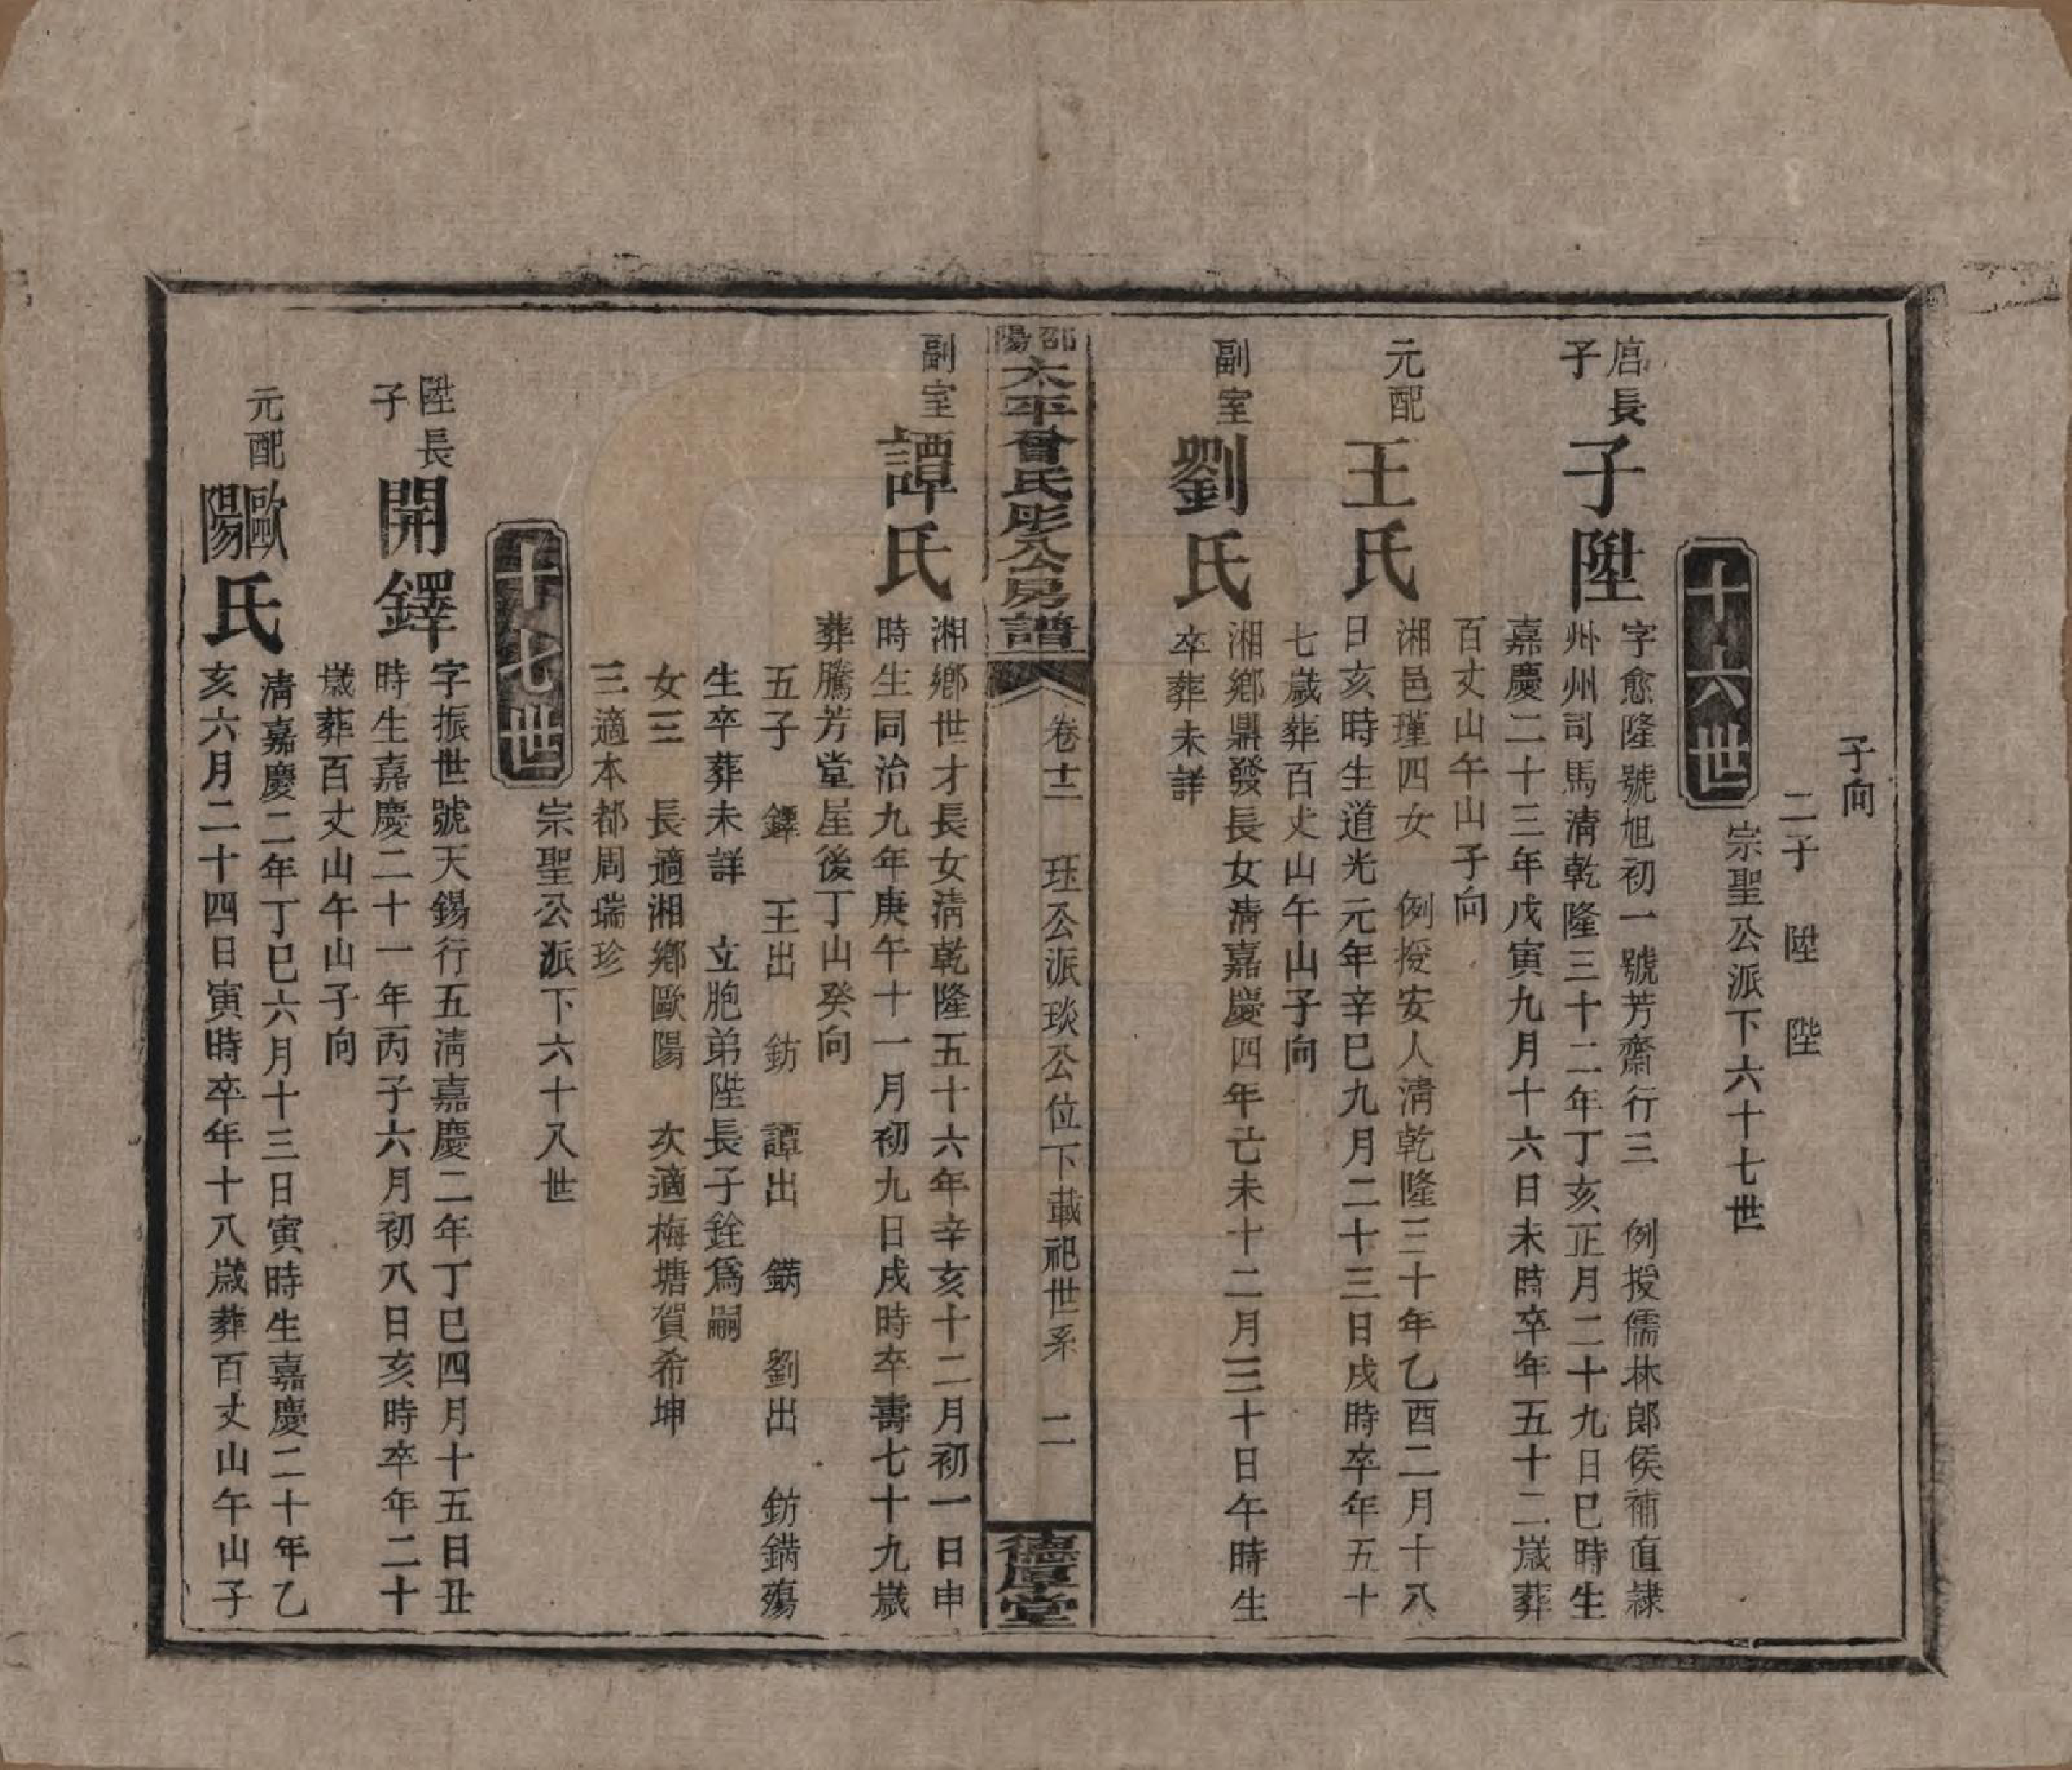 子向
二子　陞　陛
十六世
宗聖公派下六十七世
启長
子
子陞
字愈隆號旭初一號芳齋行三　例授儒林郎侯補直隸
州州司馬清乾隆三十二年丁亥正月二十九日巳時生
嘉慶二十三年戊寅九月十六日未時卒年五十二歲葬
百丈山午山子向
元配
王氏
湘邑瑾四女　例授安人清乾隆三十年乙酉二月十八
日亥時生道光元年辛巳九月二十三日戌時卒年五十
七歲葬百丈山午山子向
副室
劉氏
湘鄉鼎發長女清嘉慶四年己未十二月三十日午時生
卒葬未詳
邵陽太平曾氏彤公房譜
卷十二　珏公派琰公位下載祀世系　二
德厚堂
副室
譚氏
湘鄉世才長女清乾隆五十六年辛亥十二月初一日申
時生同治九年庚午十一月初九日戌時卒壽七十九歲
葬騰芳堂屋後丁山癸向
五子　鐸　王出　鈁　譚出　鏋　劉出　鈁鏋殤
生卒葬未詳　立胞弟陛長子銓爲嗣
女三　長適湘鄉歐陽　次適梅塘賀希坤
三適本都周瑞珍
十七世
宗聖公派下六十八世
陞長
子
開鐸
字振世號天錫行五清嘉慶二年丁巳四月十五日丑
時生嘉慶二十一年丙子六月初八日亥時卒年二十
歲葬百丈山午山子向
元配
歐陽氏
清嘉慶二年丁巳六月十三日寅時生嘉慶二十年乙
亥六月二十四日寅時卒年十八歲葬百丈山午山子